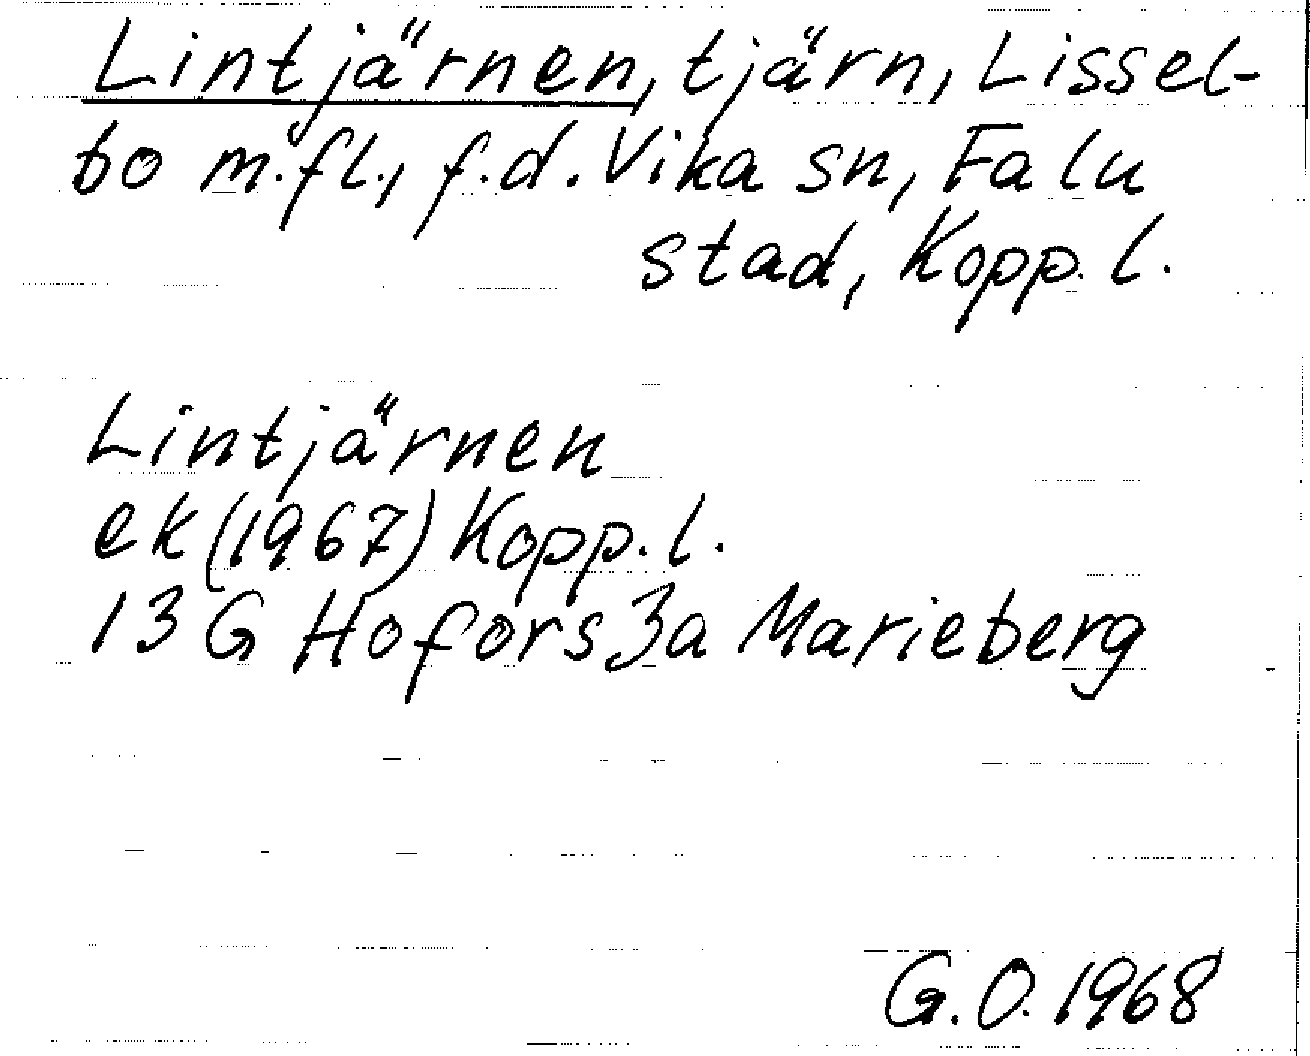 Lintjärnen, tjärn, Lissel-
bo m.fl., f.d. Vika sn, Falu
stad, Kopp. l.
Lintjärnen
ek (1967) Kopp. l.
13 G Hofors 3a Marieberg
G.O. 1968